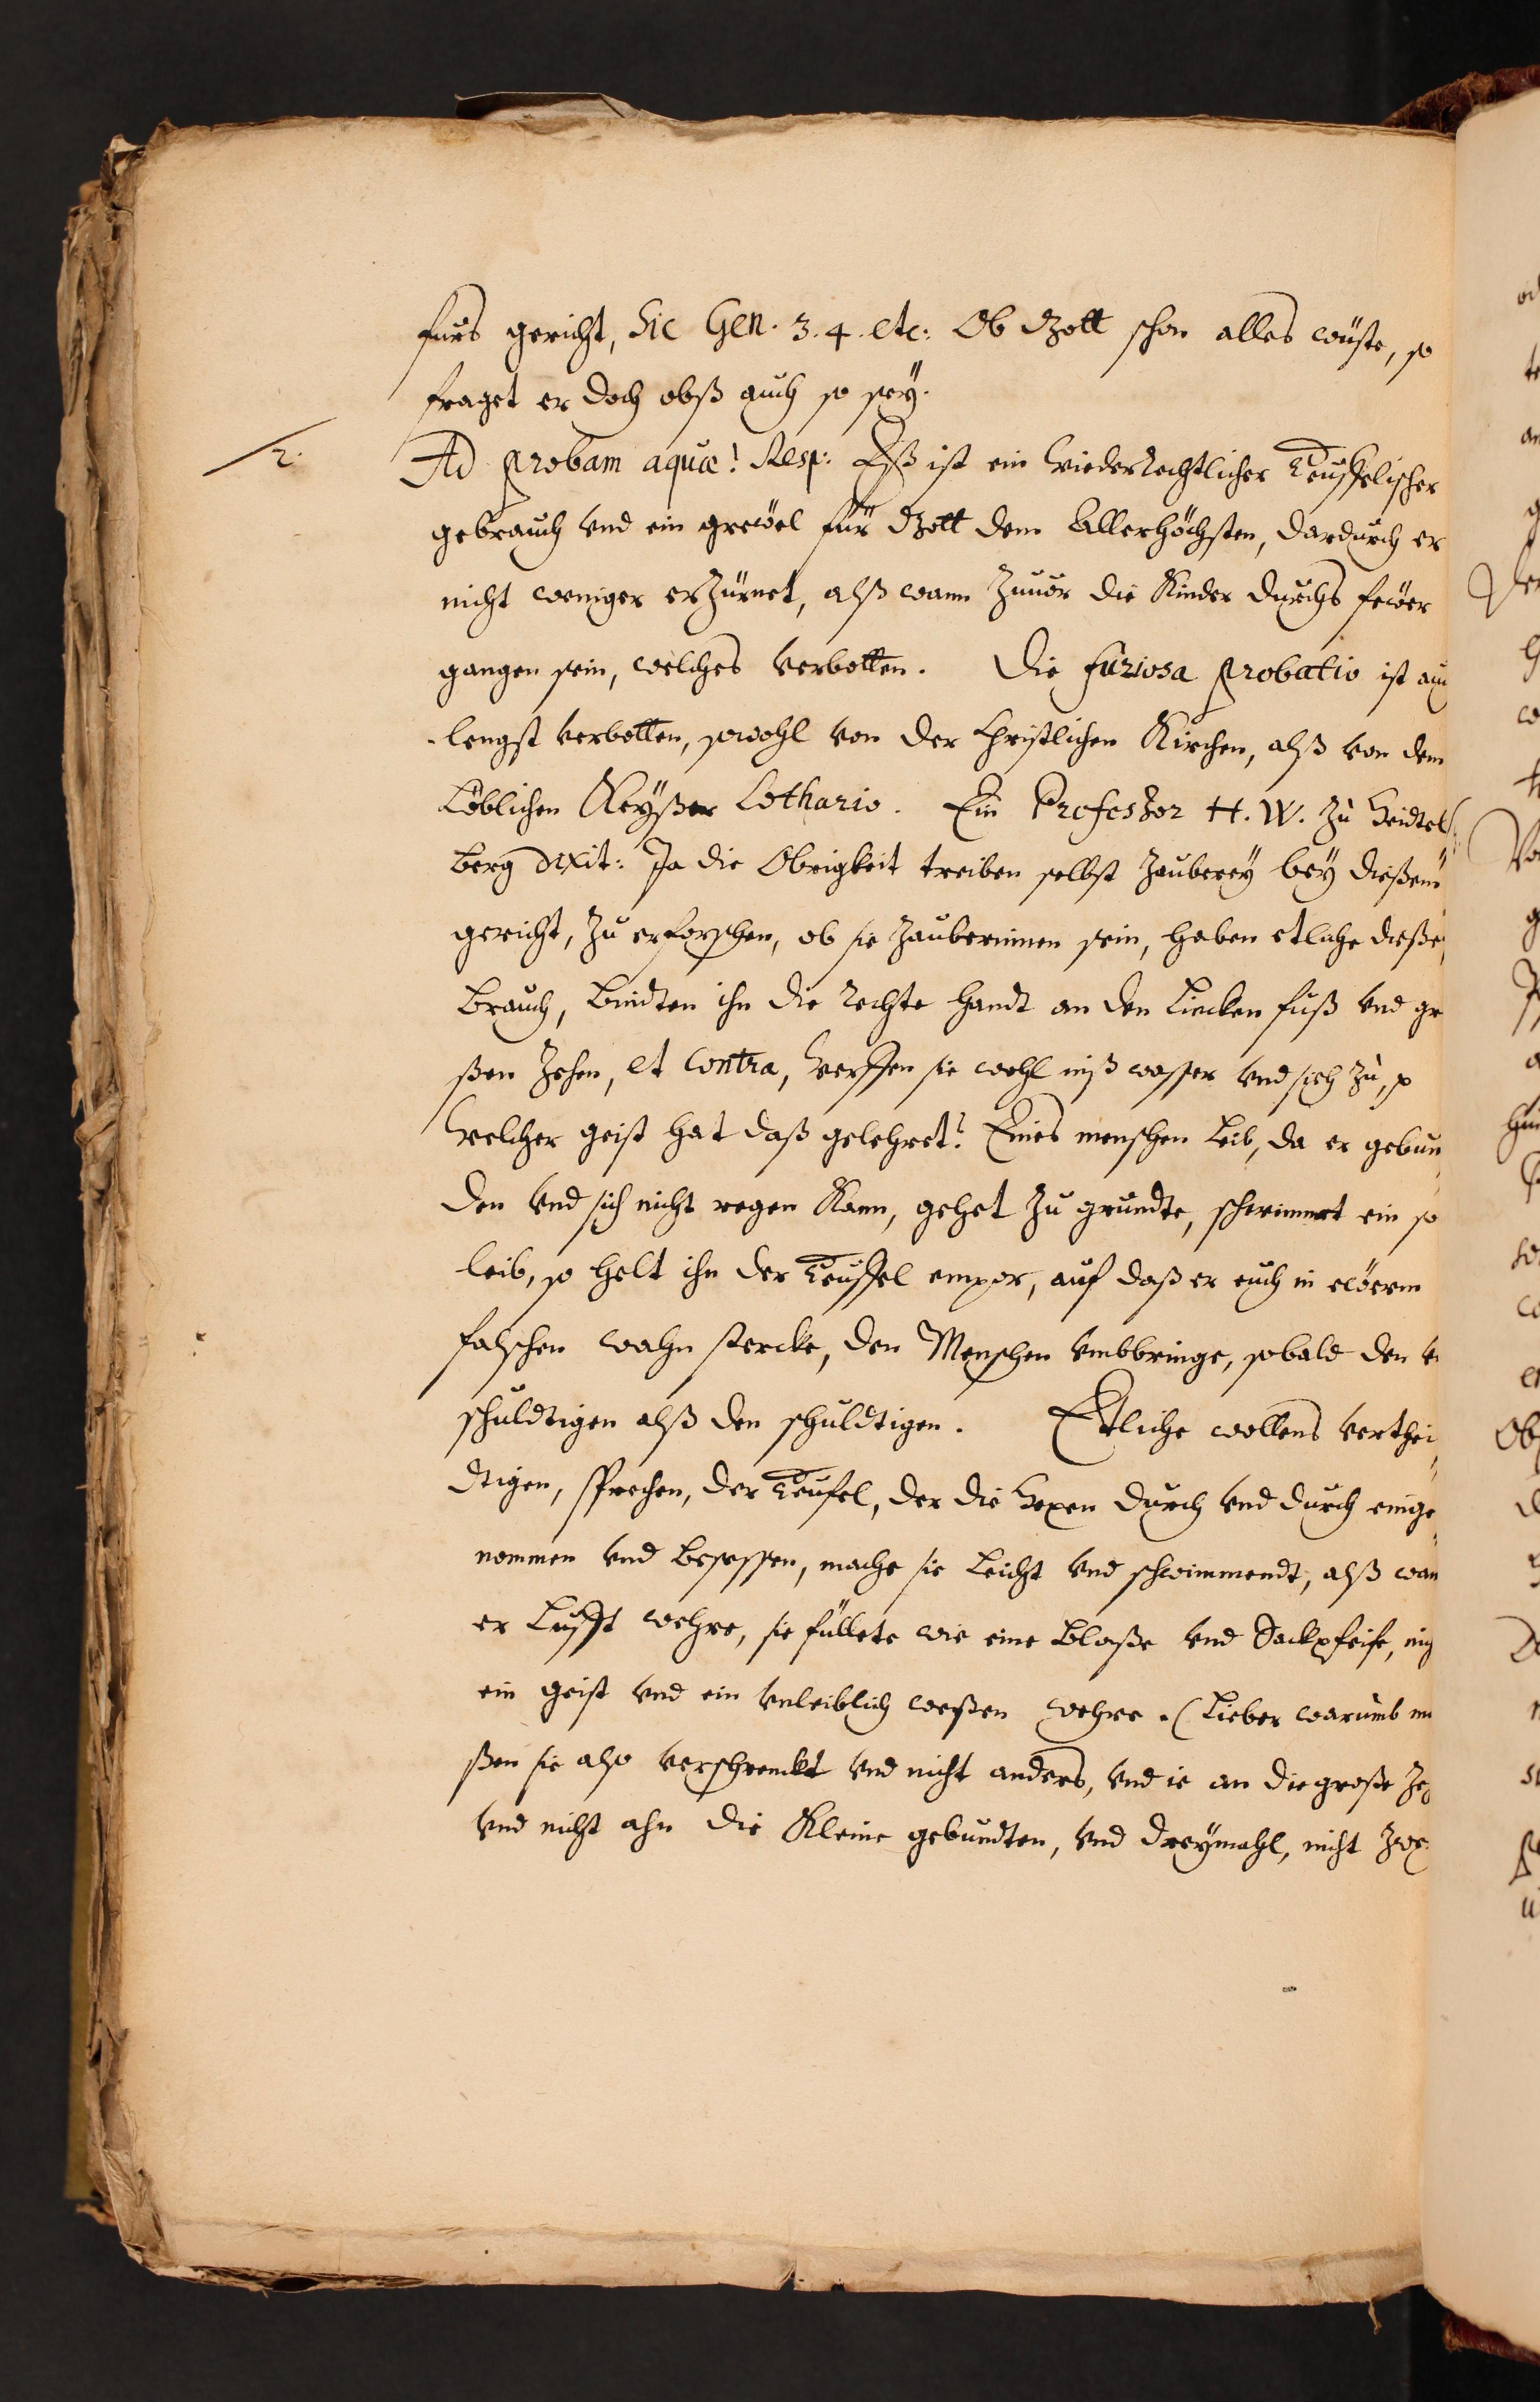 fürs gericht, Sic Gen. 3. 4. etc: Ob Gott schon alles wüste, so
fraget er doch obß auch so seÿ.
2. Ad probam aquæ! Resp: Eß ist ein Wiederrechtlicher Teuffelischer
gebrauch vnd ein grewel für Gott dem Allerhöchsten, dardurch er
nicht weniger erzürnet, alß wann zuuor die Kinder durchs fewer
gangen sein, welches verbotten. Die furiosa probatio ist auch
lengst verbotten, sowohl von der Christlichen Kirchen, alß von dem
Löblichen Keÿßer Lothario. Ein Profeszor H. W. zu Heidtel
berg dixit: Ja die Obrigkeit treiben selbst Zauberey beÿ dießem
gericht, zu erforschen, ob sie Zauberinnen sein, haben etliche dieße
Brauch, Bindten ihn die rechte Handt an den Lincken fuß vnd gr
ßen Zehen, et contra, Werffen sie wohl inß wasser vnd sich zu, so
Welcher geist hat daß gelehret? Eines menschen Leib, da er gebun
den vnd sich nicht regen Kann, gehet zu grundte, schwimmet ein so
leib, so helt ihn der Teuffel empor, auf daß er euch in ewerm
falschen wahn stercke, den Menschen vmbbringe, sobald den v
schuldtigen alß den schuldtigen. Etliche wollens verthei
dtigen, sprechen, der Teufel, der die Hexen durch vnd durch einge
nommen vnd besessen, mache sie Leicht vnd schwimmendt, alß wan
er Lufft wehre, sie füllete wie eine Blaße vnd Sackpfeife,
ein geist vnd ein vnleiblich weßen wehre. (Lieber warumb m
ßen sie also verschrenckt vnd nicht anders, vnd ie an die große Ze
vnd nicht ahn die Kleine gebundten, vnd dreÿmahl, nicht zwe